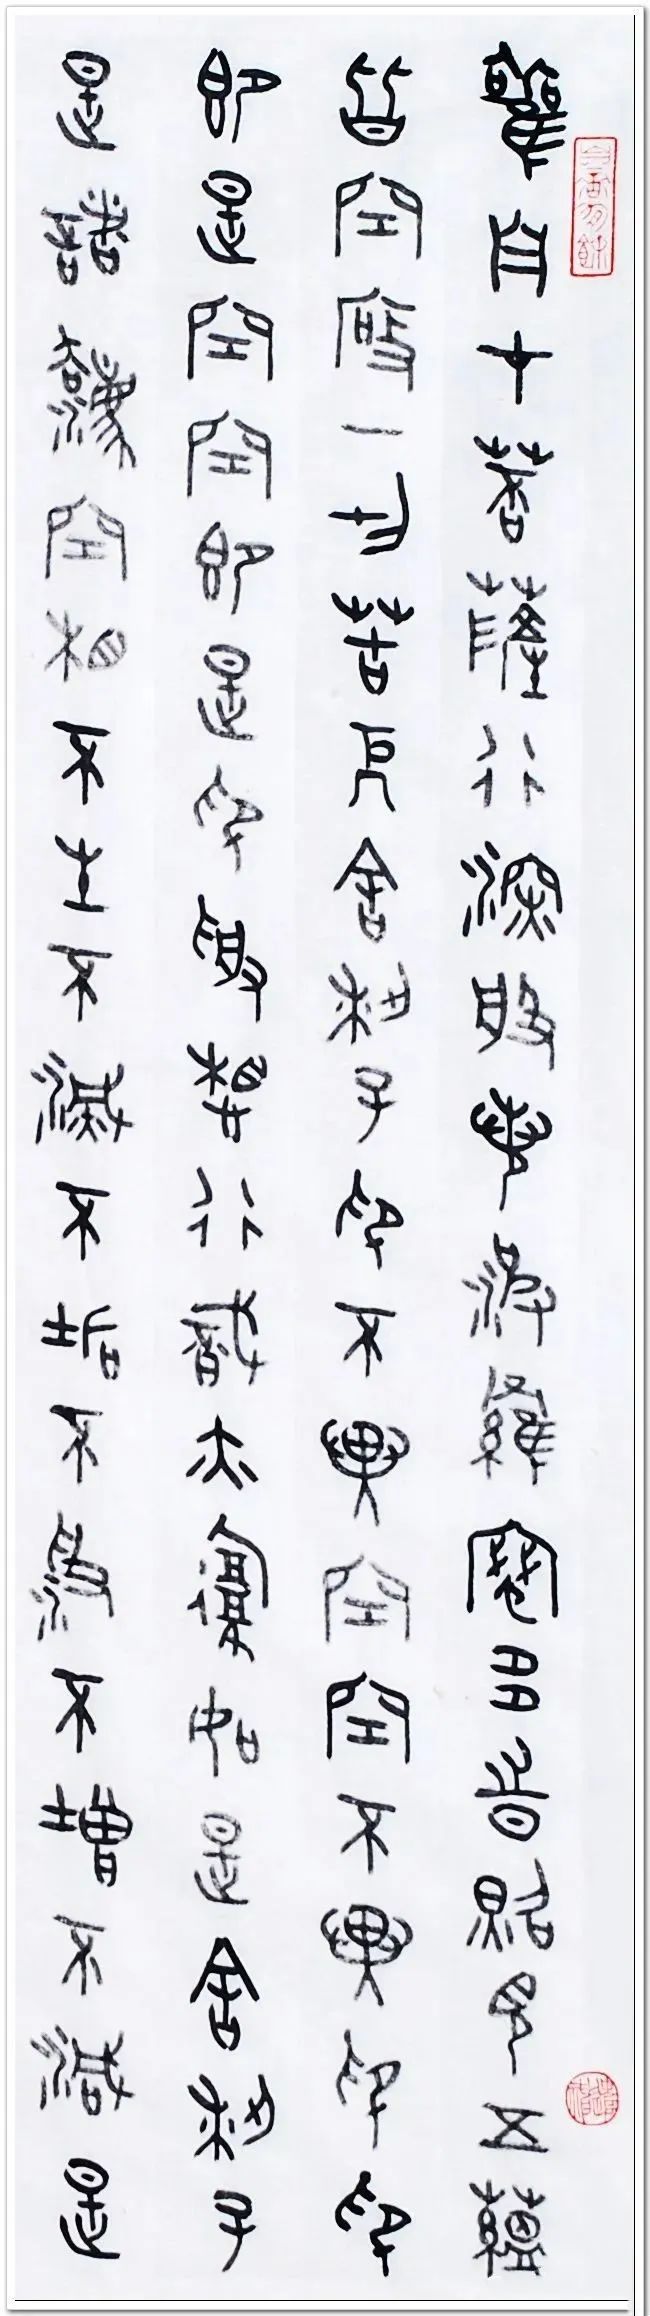 觀自在菩薩行深般若波羅蜜多時照見五蘊
皆空度一切苦厄舍利子色不異空空不異色色
即是空空即是色受想行識亦復如是舍利子
是諸法空相不生不滅不垢不淨不增不減是